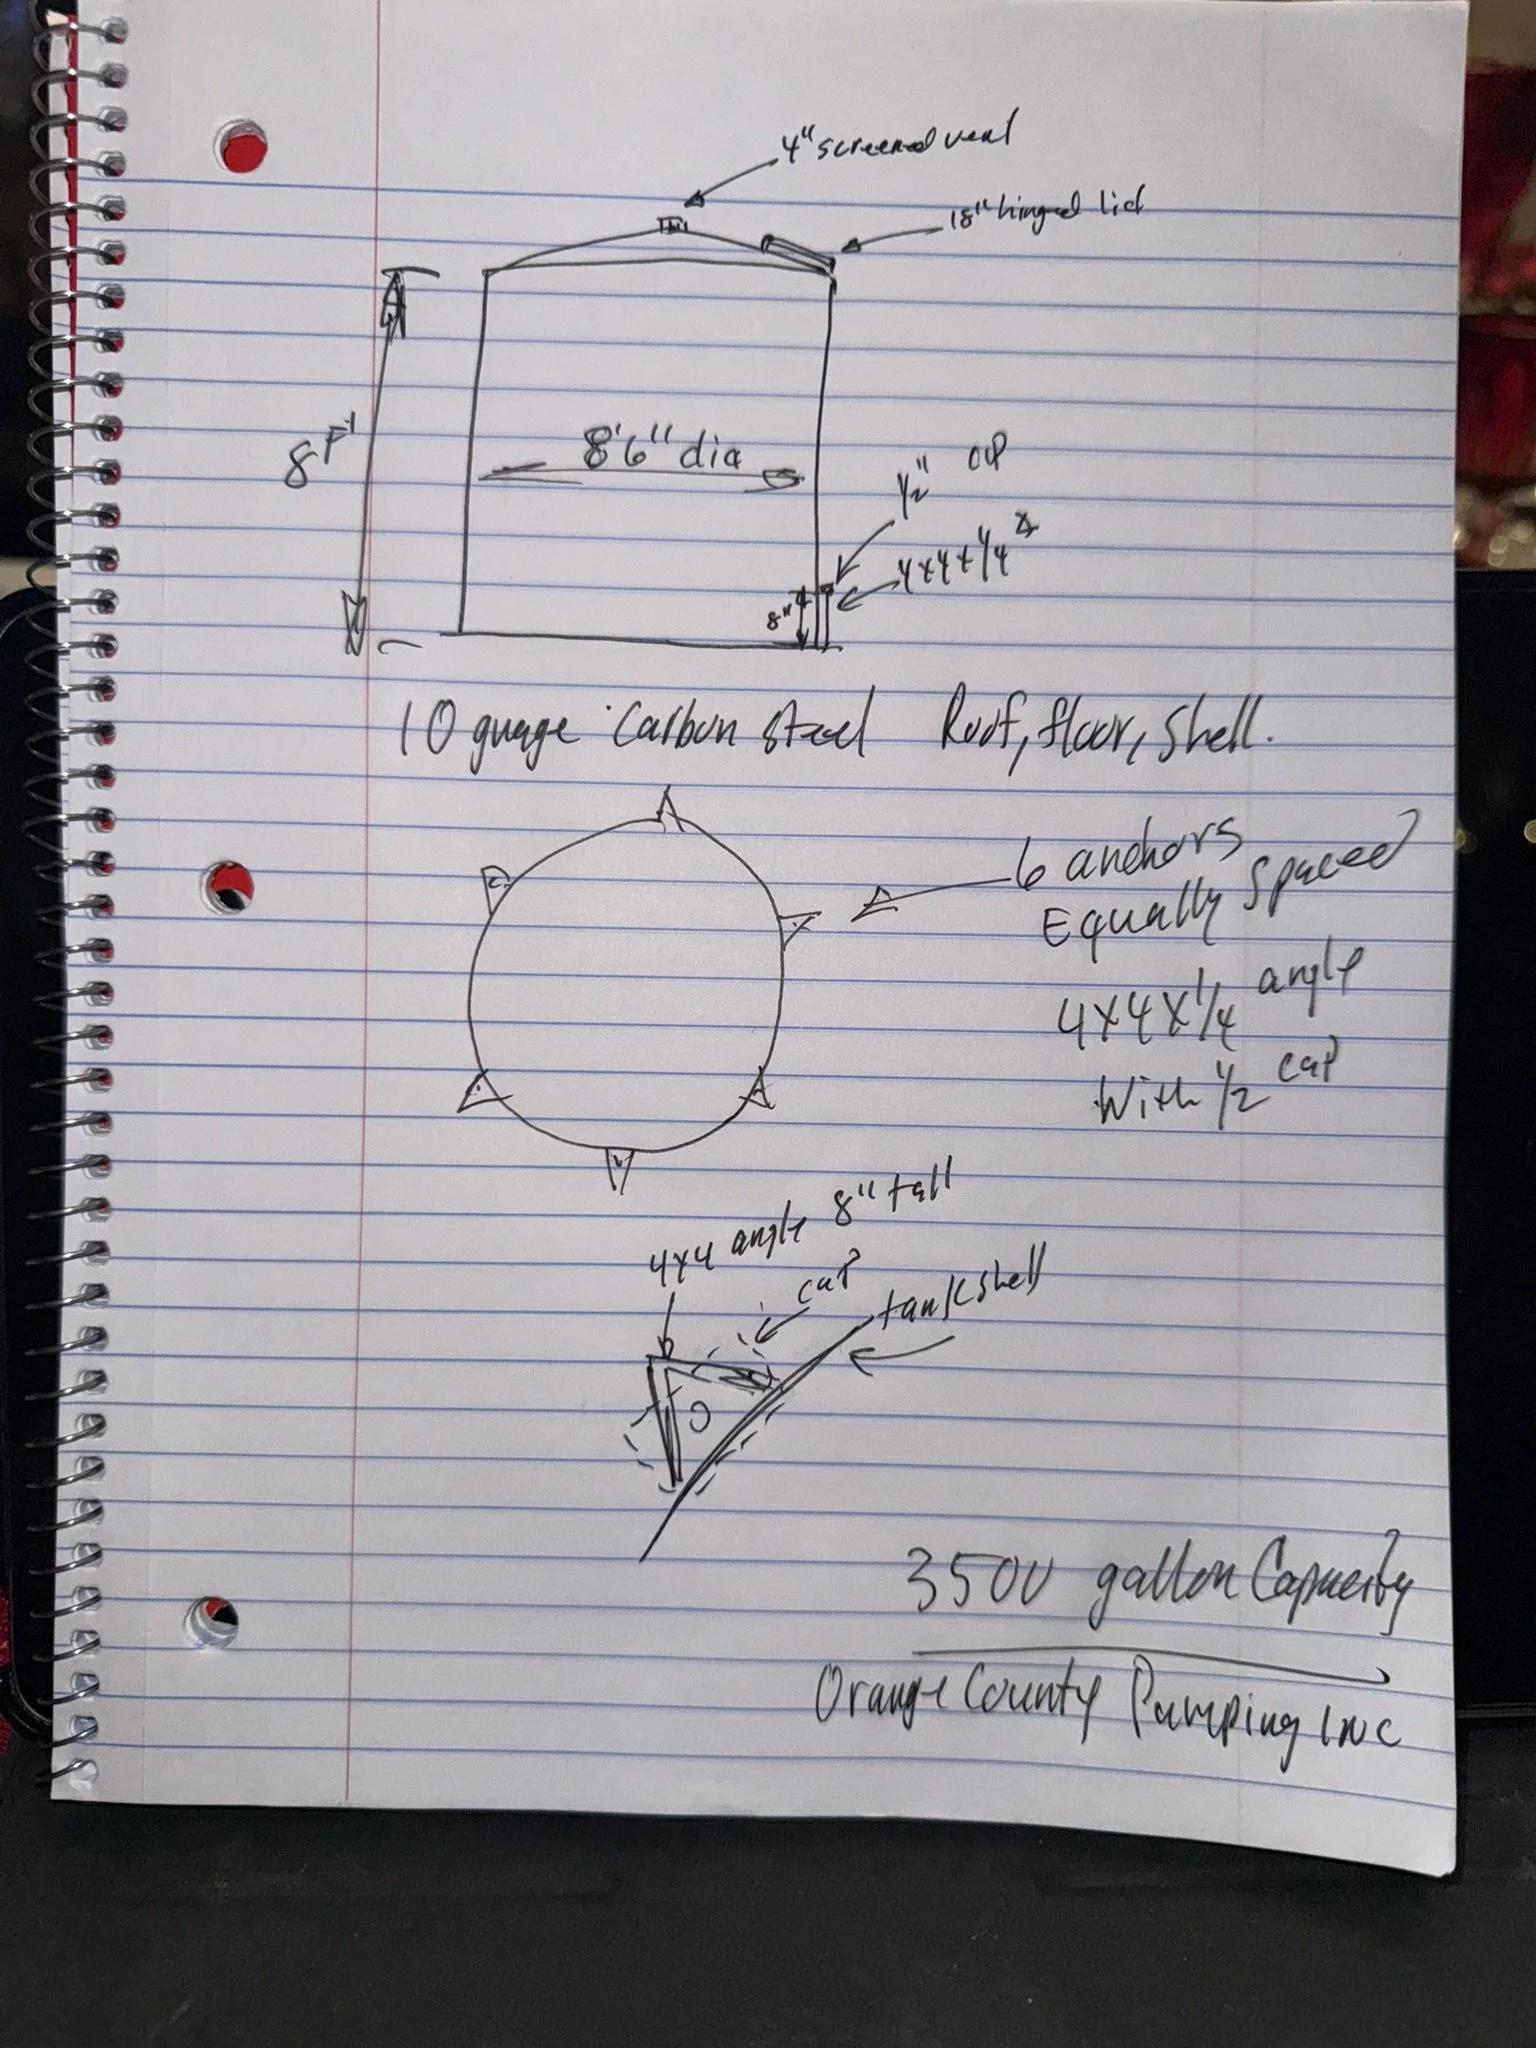 4" screened vent
18" hinged lid
8 FT
8'6" dia
1/2" cap
4x4x1/4
8"
10 guage Carbon steel Roof, floor, shell.
6 anchors
Equally spaced
4x4x1/4 angle
With 1/2 cap
4x4 angle 8" tall
cap
tank shell
3500 gallon Capacity
Orange County Pumping INC